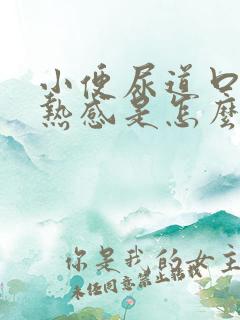 小便尿道口
熱感是怎麼
你是我的女主
未经同意禁止转载